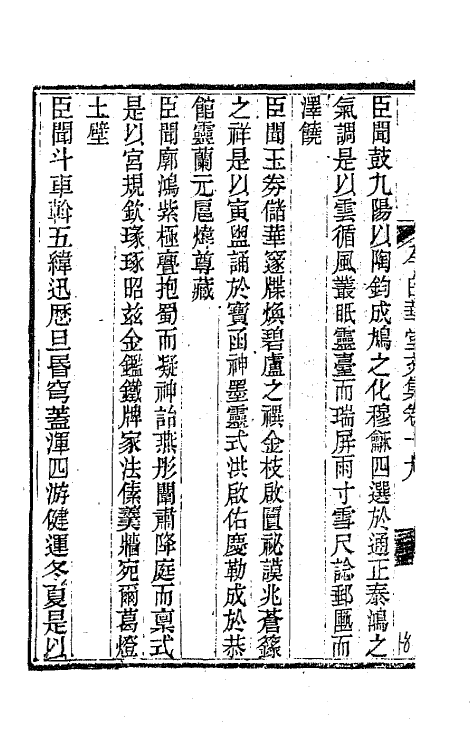 臣聞鼓九陽以陶鈞成鳩之化穆龢四選於通正泰鴻之
氣調是以雲循風叢眂靈臺而瑞屏雨寸雪尺諗郵匭而
澤饒
臣聞玉劵儲華篴牒煥碧盧之禩金枝啟匱祕謨兆蒼籙
之祥是以寅盥誦於寶函神墨靈式洪啟佑慶勒成於恭
館靈蘭元扈煒尊藏
臣聞廓鴻紫極亹抱蜀而凝神詒燕彤闈肅降庭而稟式
是以宮規欽瑑琢昭兹金鑑鐵牌家法傃羹牆宛爾葛燈
土壁
臣聞斗車斡五緯迅厯旦昬穹蓋渾四游健運冬夏是以
今白華堂文集卷十九
18